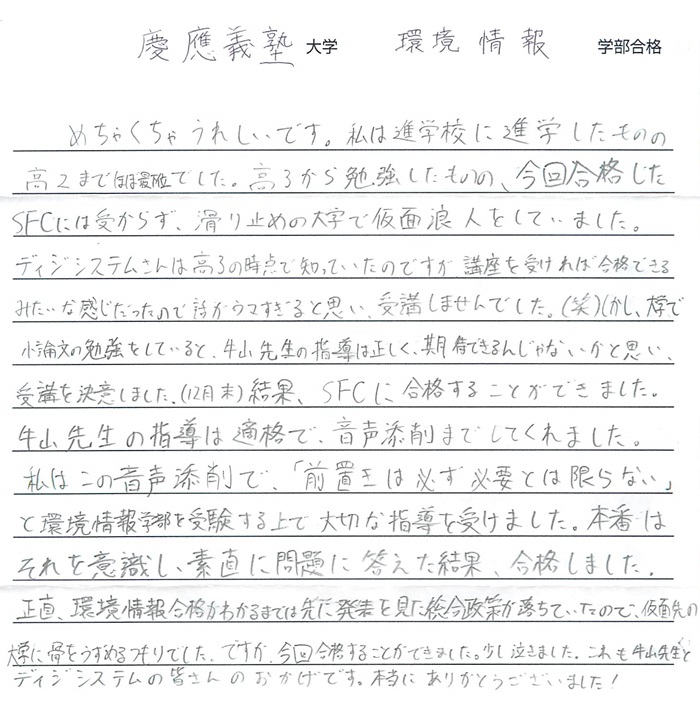 慶應義塾 大学 環境情報 学部合格
めちゃくちゃうれしいです。私は進学校に進学したものの
高2までほぼ最下位でした。高3から勉強したものの、今回合格した
SFCには受からず、滑り止めの大学で仮面浪人をしていました。
ディジシステムさんは高3の時点で知っていたのですが講座を受ければ合格できる
みたいな感じだったので話がウマすぎると思い、受講しませんでした。(笑)しかし、大学で
小論文の勉強をしていると、牛山先生の指導は正しく、期待できるんじゃないかと思い、
受講を決意しました。(12月末)結果、SFCに合格することができました。
牛山先生の指導は適格で、音声添削までしてくれました。
私はこの音声添削で、「前置きは必ず必要とは限らない」
と環境情報学部を受験する上で大切な指導を受けました。本番は
それを意識し、素直に問題に答えた結果、合格しました。
正直、環境情報合格がわかるまでは先に発表を見た総合政策が落ちていたので、仮面先の
大学に骨をうずめるつもりでした。ですが、今回合格することができました。少し泣きました。これも牛山先生と
ディジシステムの皆さんのおかげです。本当にありがとうございました!